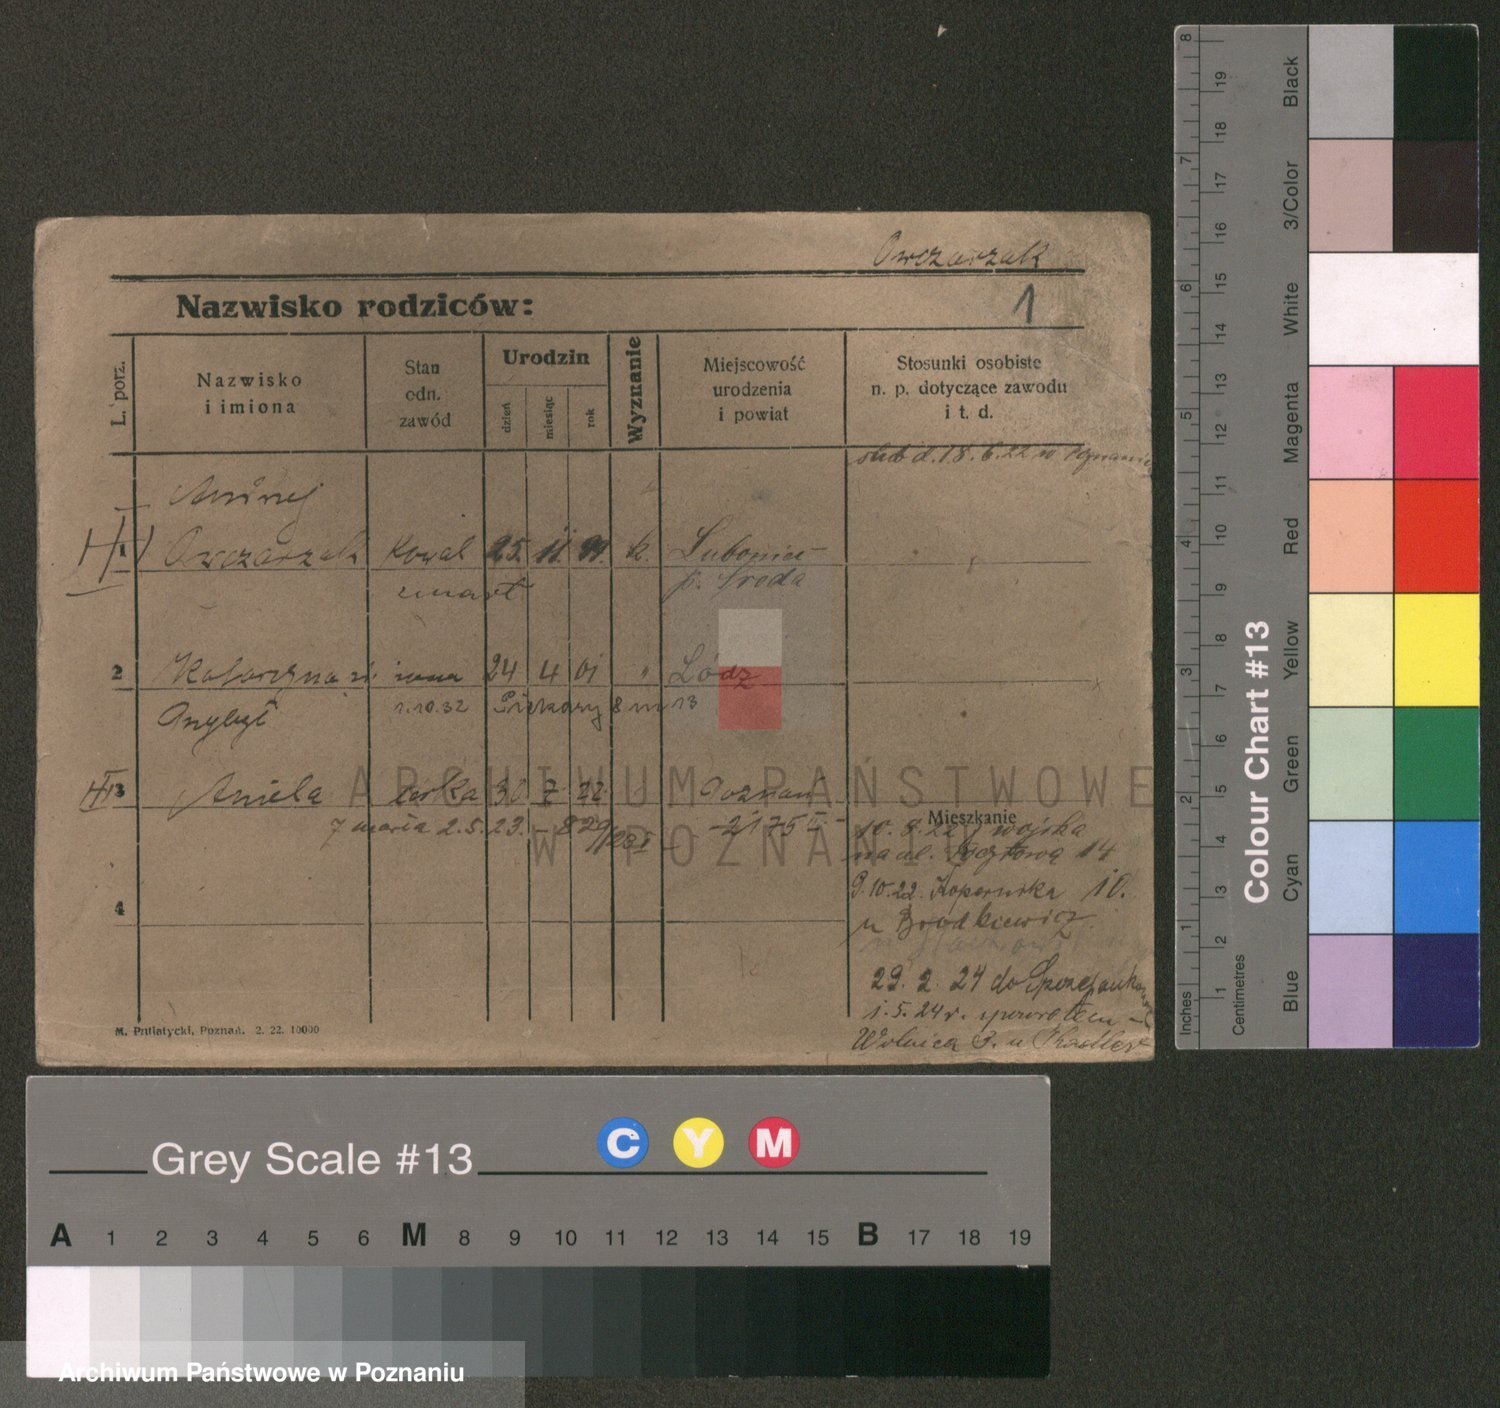 Owczarzak
Nazwisko rodziców:
1
L. porz.
Nazwisko
i imiona
Stan
odn.
zawód
Urodzin
dzień
miesiąc
rok
Wyznanie
Miejscowość
urodzenia
i powiat
Stosunki osobiste
n. p. dotyczące zawodu
i t. d.
ślub d. 18. 6. 22 w Poznaniu
1
Owczarzak kowal 25. 11. k.
p. Środa
2 Katarzyna żona 24 4 01 " Łódź
1.10.32 Piekary 8 m 13
3 Aniela córka 30 7 22 Poznań
7 2.5.23.
Mieszkanie
10. 8. 22 z wojska
na ul. 14
4
9.10.22. 10.
u
29. 2. 24 do
1. 5. 24 r.
Wolnica 3. u
M. Putiatycki, Poznań. 2. 22. 10000
ARCHIWUM PAŃSTWOWE
W POZNANIU
Grey Scale #13
C Y M
A 1 2 3 4 5 6 M 8 9 10 11 12 13 14 15 B 17 18 19
Archiwum Państwowe w Poznaniu
Colour Chart #13
Inches
1 2 3 4 5 6 7 8
Centimetres
1 2 3 4 5 6 7 8 9 10 11 12 13 14 15 16 17 18 19
Blue
Cyan
Green
Yellow
Red
Magenta
White
3/Color
Black